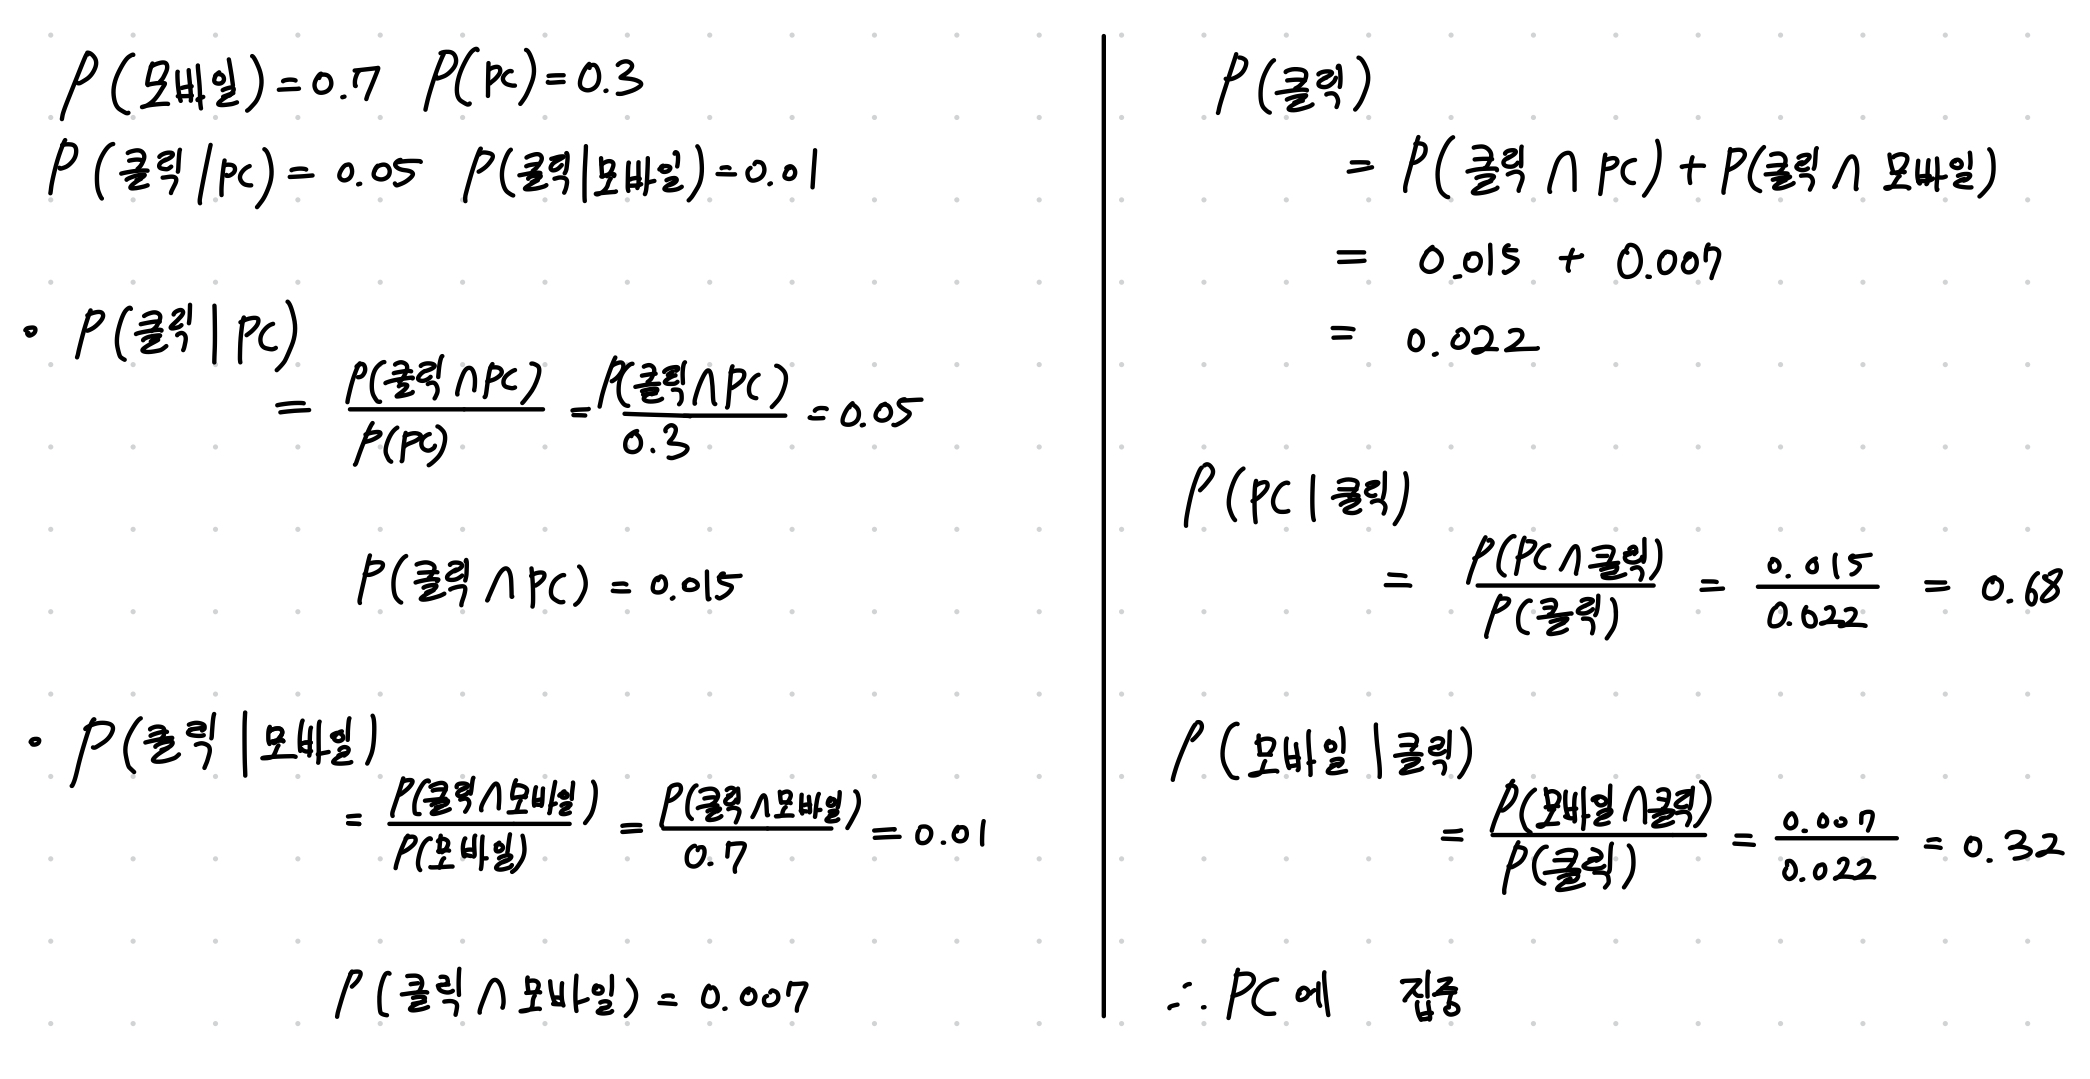 P(모바일)=0.7 P(PC)=0.3
P(클릭|PC)=0.05 P(클릭|모바일)=0.01
• P(클릭|PC)
= P(클릭∩PC)/P(PC) = P(클릭∩PC)/0.3 = 0.05
P(클릭∩PC) = 0.015
• P(클릭|모바일)
= P(클릭∩모바일)/P(모바일) = P(클릭∩모바일)/0.7 = 0.01
P(클릭∩모바일) = 0.007
P(클릭)
= P(클릭∩PC)+P(클릭∩모바일)
= 0.015 + 0.007
= 0.022
P(PC|클릭)
= P(PC∩클릭)/P(클릭) = 0.015/0.022 = 0.68
P(모바일|클릭)
= P(모바일∩클릭)/P(클릭) = 0.007/0.022 = 0.32
∴ PC에 집중